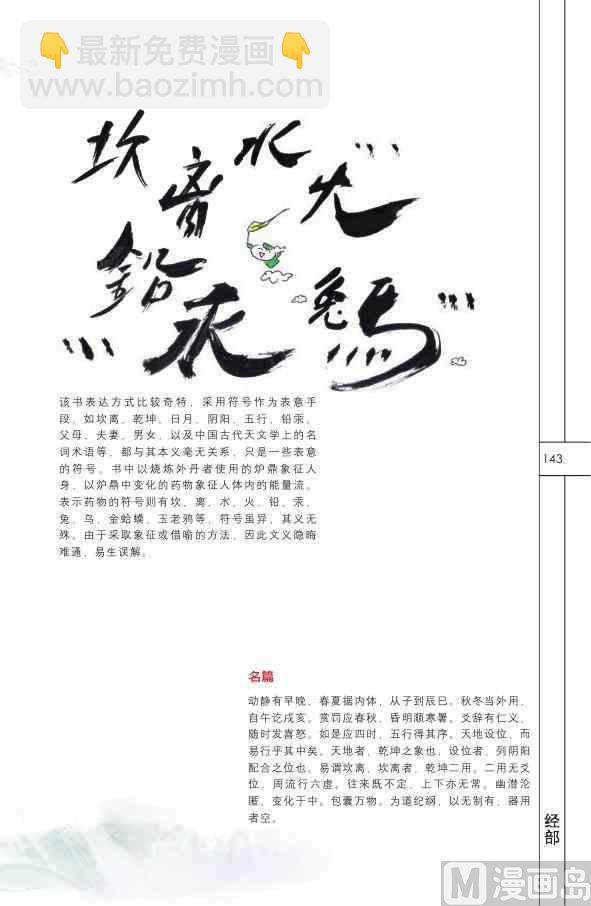 最新免费漫画
www.baozimh.com
坎离水火
铅汞兔马
该书表达方式比较奇特，采用符号作为表意手
段，如坎离、乾坤、日月、阴阳、五行、铅汞、
父母、夫妻、男女，以及中国古代天文学上的名
词术语等，都与其本义毫无关系，只是一些表意
的符号。书中以烧炼外丹者使用的炉鼎象征人
身，以炉鼎中变化的药物象征人体内的能量流。
表示药物的符号则有坎、离、水、火、铅、汞、
兔、乌、金蛤蟆、玉老鸦等，符号虽异，其义无
殊。由于采取象征或借喻的方法，因此文义隐晦
难通，易生误解。
143
名篇
动静有早晚，春夏据内体，从子到辰巳。秋冬当外用，
自午讫戌亥。赏罚应春秋，昏明顺寒暑。爻辞有仁义，
随时发喜怒。如是应四时，五行得其序。天地设位，而
易行乎其中矣。天地者，乾坤之象也，设位者，列阴阳
配合之位也。易谓坎离，坎离者，乾坤二用。二用无爻
位，周流行六虚。往来既不定，上下亦无常。幽潜沦
匿，变化于中。包囊万物。为道纪纲，以无制有，器用
者空。
经部
漫画岛